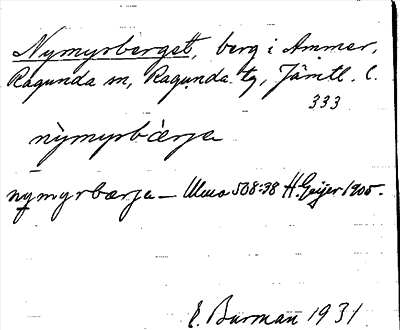 Nymyrberget, berg i Ammer,
Ragunda sn, Ragunda tg, Jämtl. l.
333
nỳmyrbæ̀rja
nymyrbærja – Ulma 508:38 H. Geijer 1905.
E. Burman 1931